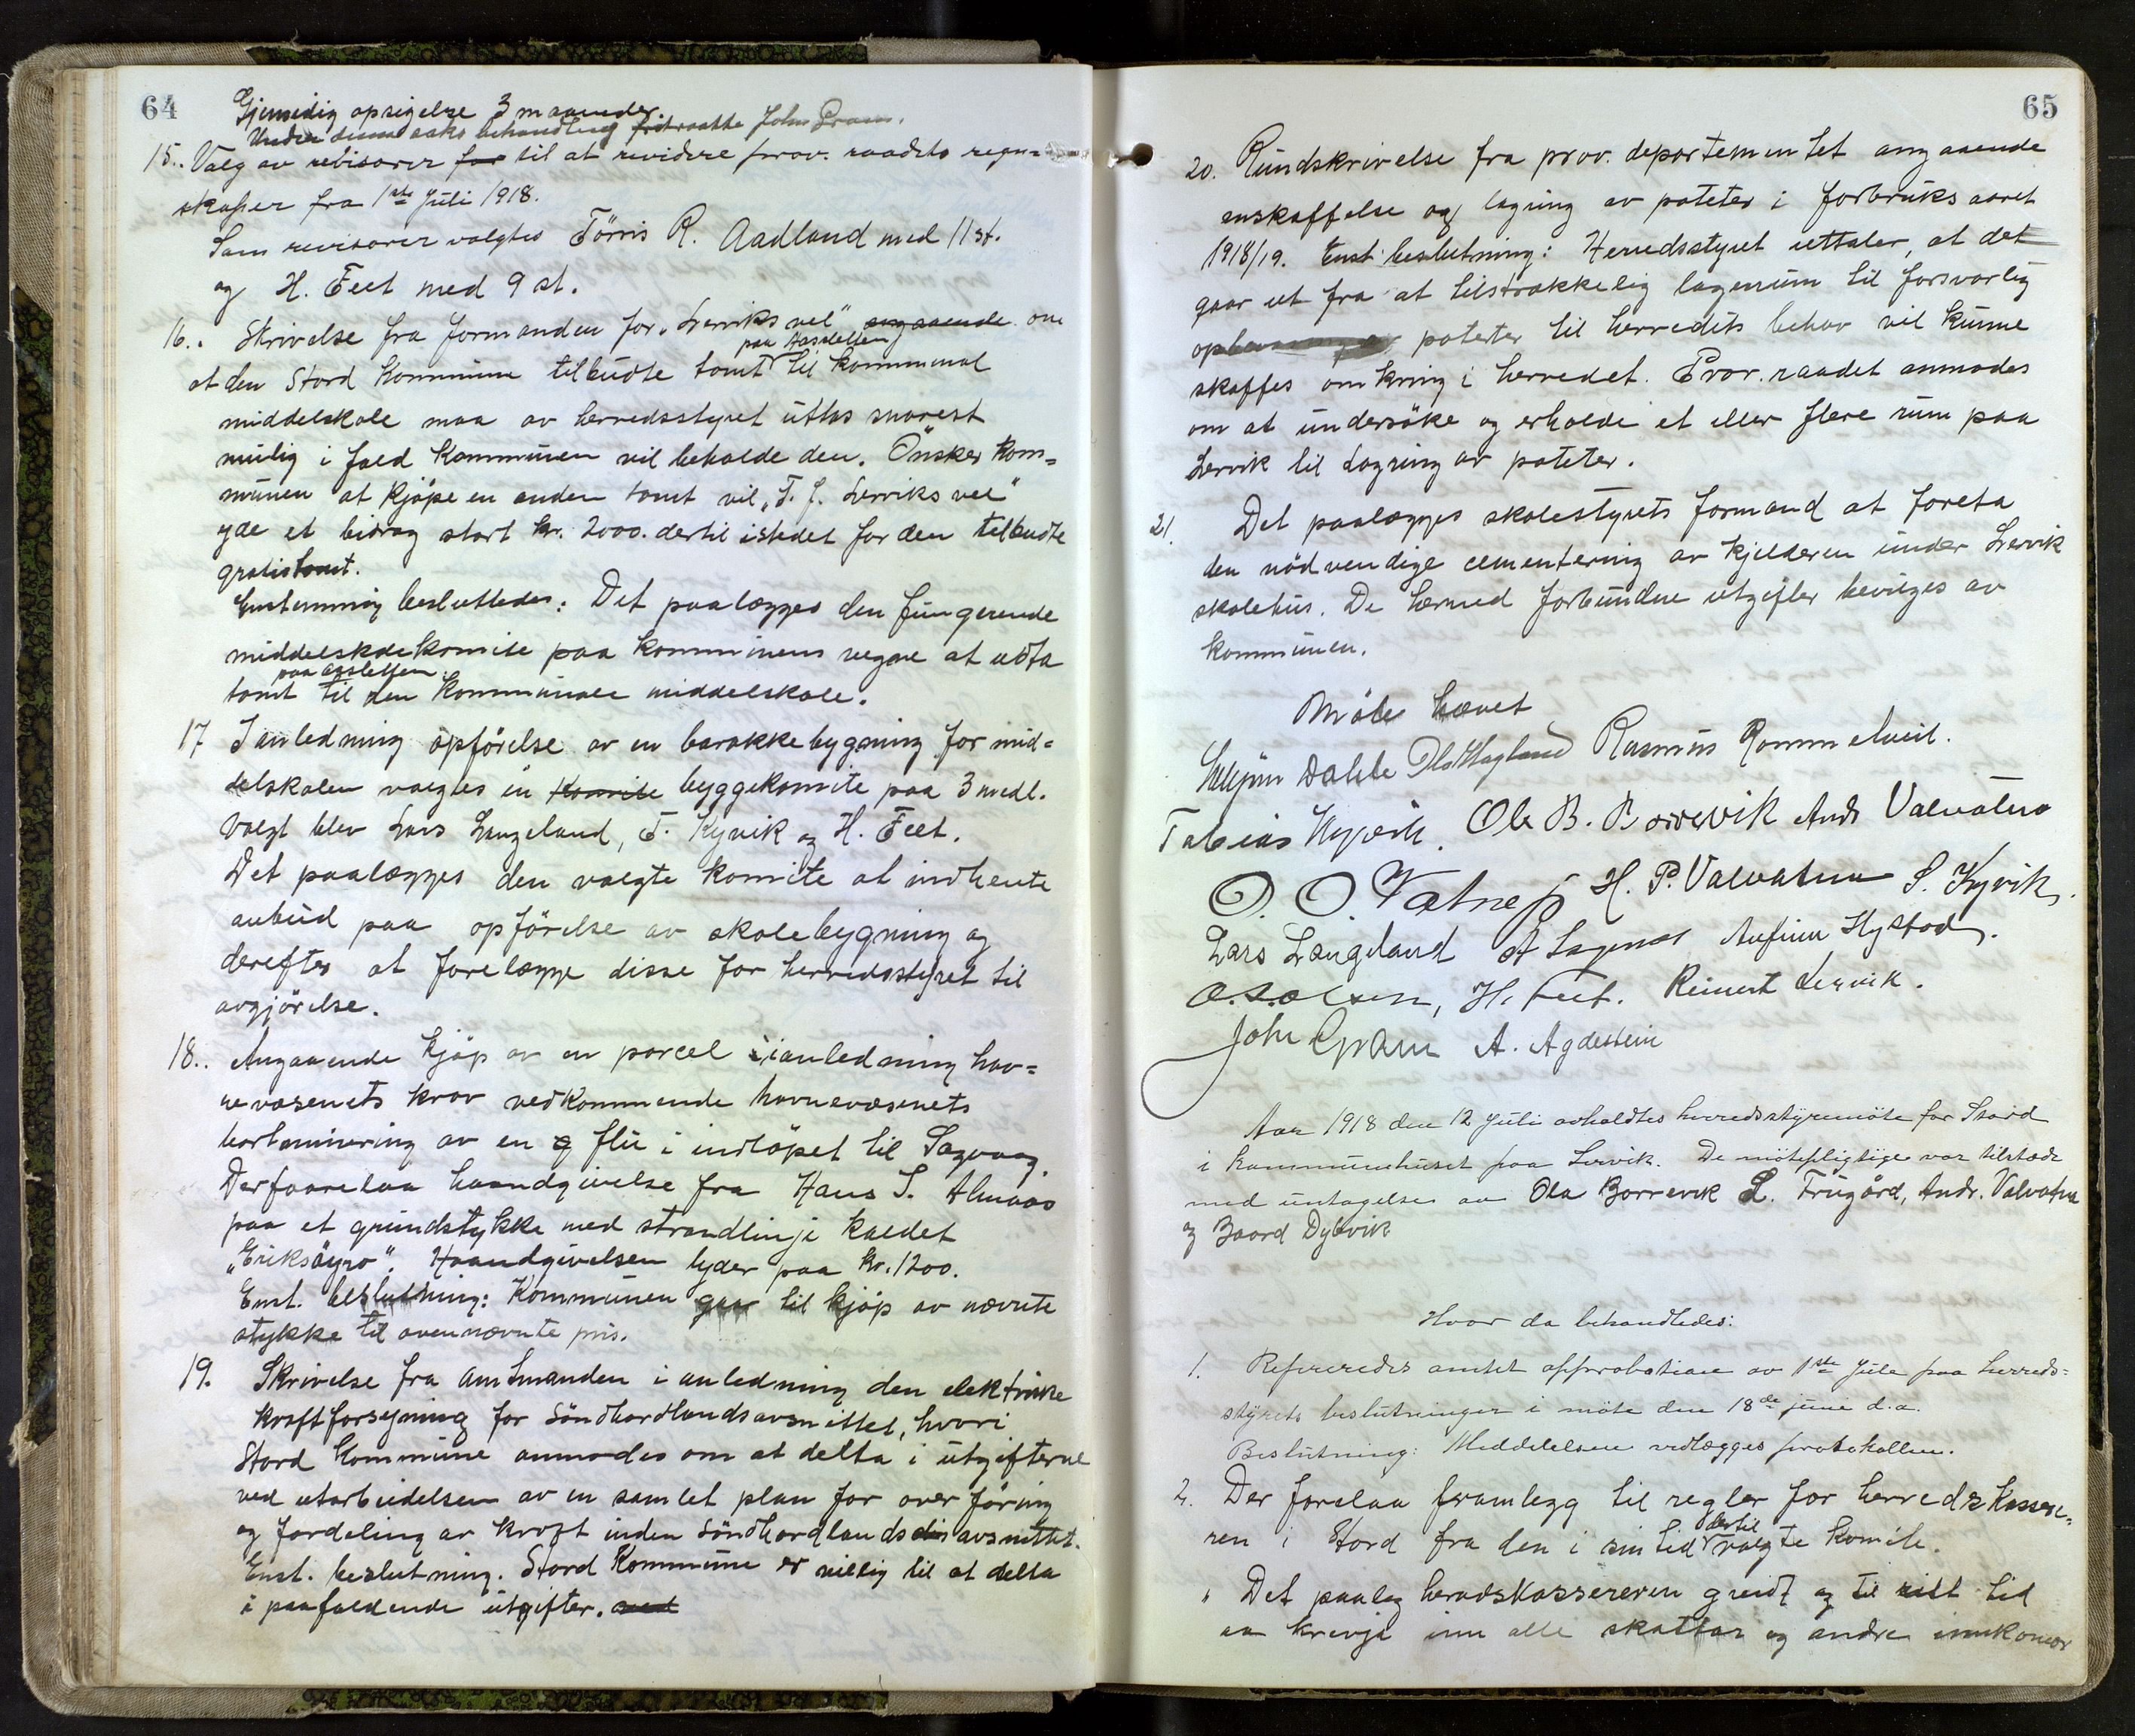 64
Gjensidig opsigelse 3 maaneder.
Under denne saks behandling fratraatte John Gram.
15. Valg av revisorer for til at revidere prov. raadets regn=
skaper fra 1ste Juli 1918.
Som revisorer valgtes Törris R. Aadland med 11 st.
og H. Feet med 9 st.
16. Skrivelse fra formanden for "Lerviks vel" angaaende om
paa Aasletten
at den Stord Kommune tilbudte tomt til kommunal
middelskole maa av herredsstyret uttas snarest
mulig i fald Kommunen vil beholde den. Önsker kom=
munen at kjöpe en anden tomt vil "F. f. Lerviks vel"
yde et bidrag stort kr. 2000. dertil istedet for den tilbudte
gratistomt.
Enstemmig besluttedes: Det paalægges den fungerende
middelskolekomite paa kommunens vegne at utta
paa aasletten
tomt til den kommunale middelskole.
17 I anledning opförelse av en barakkebygning for mid=
delskolen valgtes en Komite byggekomite paa 3 medl.
Valgt blev Lars Langeland, T. Kyvik og H. Feet.
Det paalægges den valgte komite at indhente
anbud paa opförelse av skolebygning og
derefter at forelægge disse for herredsstyret til
avgjörelse.
18. Angaaende kjöp av en parcel i anledning hav=
nevæsenets krav vedkommende havnevæsenets
bortminering av en flu i indlöpet til Sagvaag.
Der forelaa haandgivelse fra Hans S. Almaas
paa et grundstykke med strandlinje kaldet
"Eriksöyro". Haandgivelsen lyder paa kr. 1200.
Enst. beslutning: Kommunen gaar til kjöp av nævnte
stykke til ovennævnte pris.
19. Skrivelse fra amtmanden i anledning den elektriske
kraftforsyning for Söndhordlandsavsnittet, hvori
Stord Kommune anmodes om at delta i utgifterne
ved utarbeidelsen av en samlet plan for overföring
og fordeling av kraft inden Söndhordlandsdis avsnittet.
Enst. beslutning. Stord Kommune er villig til at delta
i paafaldende utgifter. med
65
20. Rundskrivelse fra prov. departementet angaaende
anskaffelse og lagring av poteter i forbruksaaret
1918/19. Enst beslutning: Herredsstyret uttaler, at det
gaar ut fra at tilstrækkelig lagerrum til forsvarlig
opbevaring av poteter til herredets behov vil kunne
skaffes omkring i herredet. Prov. raadet anmodes
om at undersöke og erholde et eller flere rum paa
Lervik til Lagring av poteter.
21. Det paalægges skolestyrets formand at foreta
den nödvendige cementering av kjelderen under Lervik
skolehus. De hermed forbundne utgifter bevilges av
kommunen.
Möte hævet
Dahle Ola Hagland Rasmus Rommetveit.
Tobias Hyvik. Ole B. Borrevik Andr Valvatna
O. O. Vatne H. P. Valvatna S. Kyvik.
Lars Langeland A Sagvaag Anfinn Hystad.
O. S. Olsen, H. Feet. Reinert Lervik.
John Gram A. Agdestein
Aar 1918 den 12 Juli avholdtes herredsstyremöte for Stord
i kommunehuset paa Lervik. De mötepligtige var tilstæde
med untagelse av Ola Borrevik L. Frugård, Andr. Valvatna
og Baard Dybvik
Hvor da behandledes:
1. Refereredes amtets approbation av 1ste Juli paa herreds=
styrets beslutninger i möte den 18de juni d.a.
Beslutning: Meddelelsen vedlægges protokollen.
2. Der forelaa framlegg til regler for herredskassere=
dertil
ren i Stord fra den i sin tid valgte komite.
" Det paalig heradskassereren greidt og til rett tid
aa krevja inn alle skattar og andre innkomor